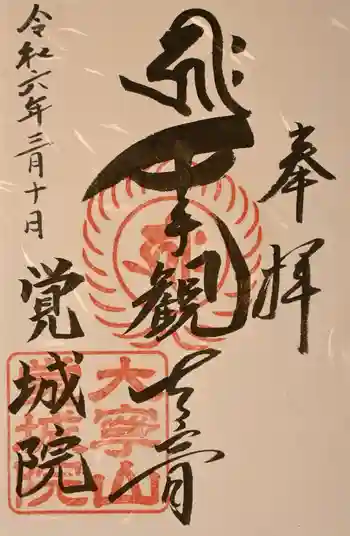 奉拝
千手観世音
覚城院
令和六年三月十日
大寧山
城院